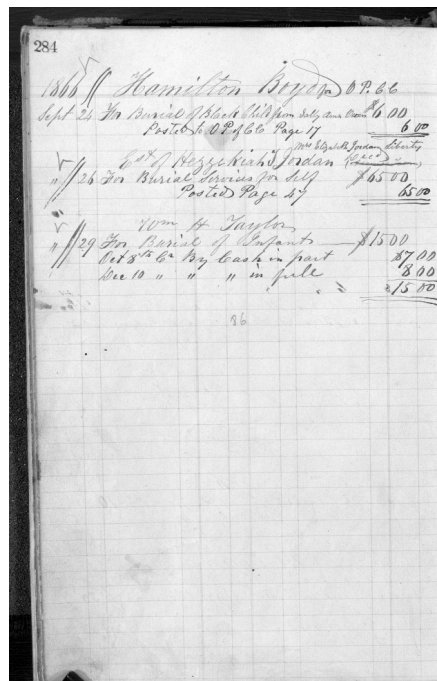 284
1866 Hamilton Boyd for O P. C C
Sept 24 For Burial of Black Child from Sally Ann $6.00
Posted to O P of C C Page 17 6 00
Est of Hezzekiah Jordan Mrs Elizabeth Jordan Liberty
" 26 For Burial Services for Self $65 00
Posted Page 47 65 00
Wm H Taylor
" 29 For Burial of Infant $15 00
Oct 8th Cr By Cash in part $7 00
Dec 10 " " " in full 8 00
" " " 15 00
86